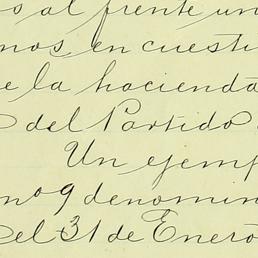 o al frente un
nos, en cuesti
e la hacienda
del Partido
Un ejemp
nº 9 denomin
el 31 de Enero